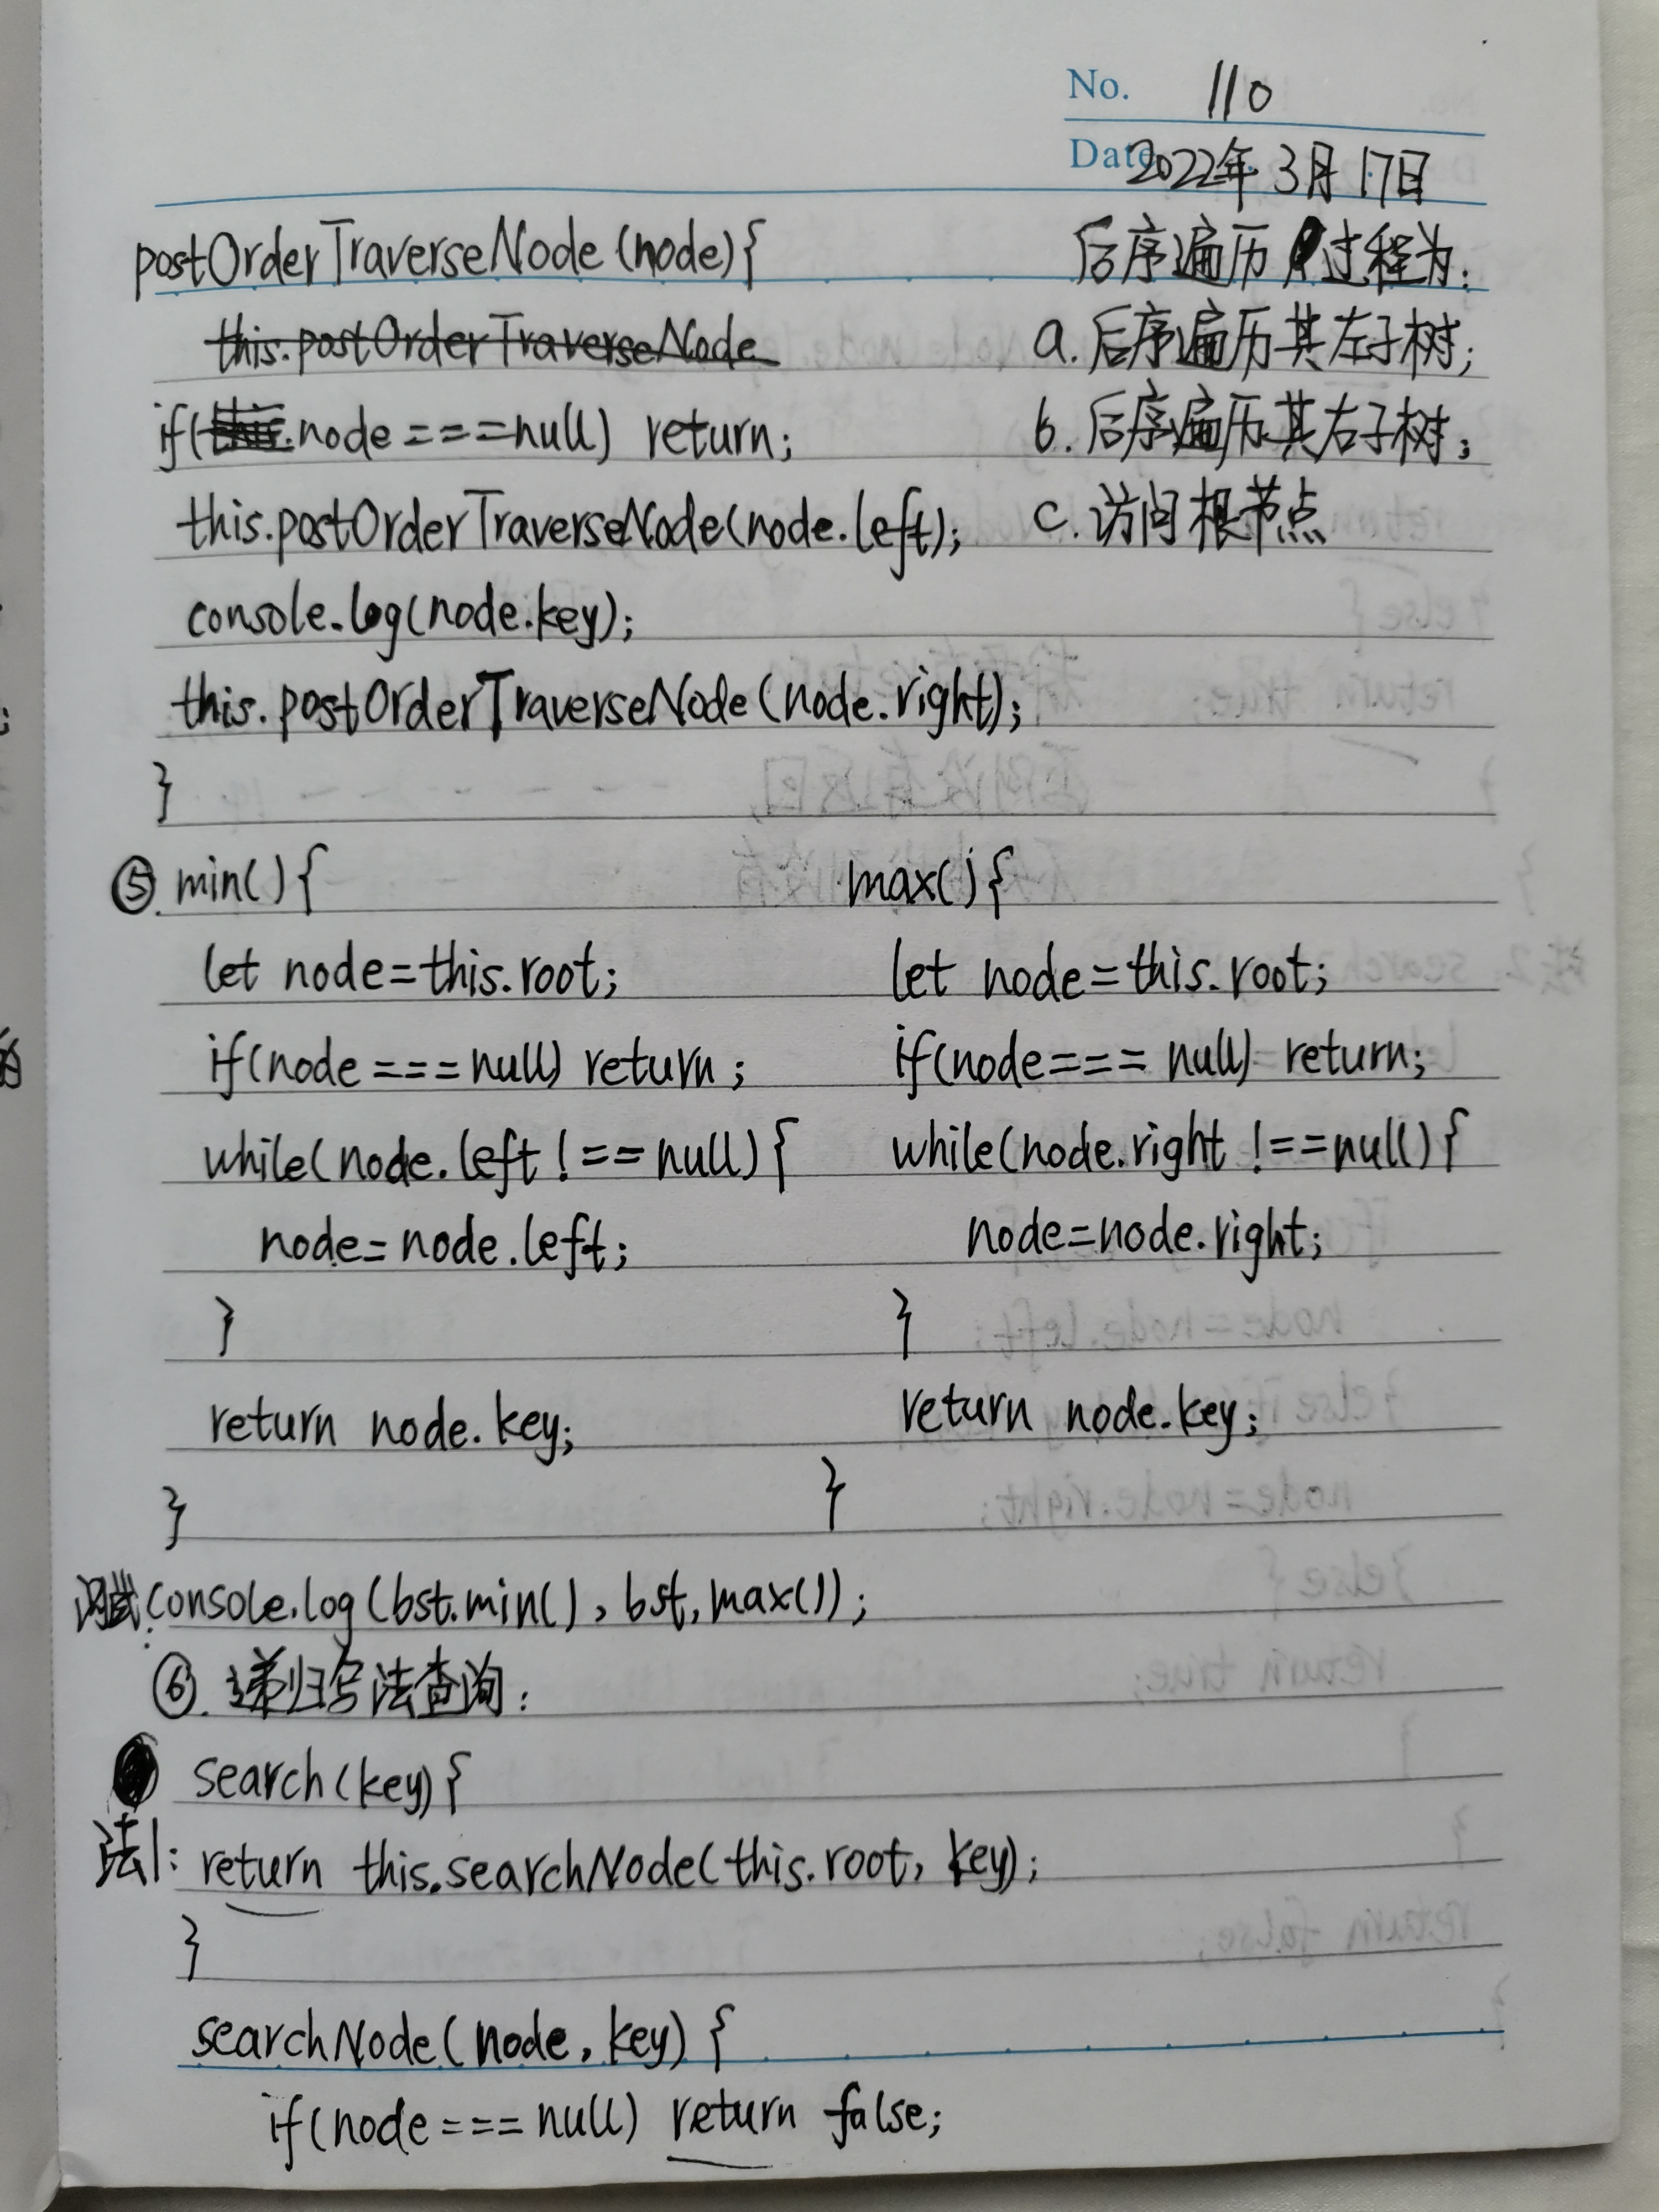 No. 110
Date 2022年3月17日
postOrderTraverseNode(node){
后序遍历过程为:
this.postOrderTraverseNode
a. 后序遍历其左子树;
if(this.node===null) return;
b. 后序遍历其右子树;
this.postOrderTraverseNode(node.left);
c. 访问根节点
console.log(node.key);
this.postOrderTraverseNode(node.right);
}
⑤. min(){
let node=this.root;
if(node===null) return;
while(node.left!==null){
node=node.left;
}
return node.key;
}
max(){
let node=this.root;
if(node===null) return;
while(node.right!==null){
node=node.right;
}
return node.key;
}
测试:console.log(bst.min(), bst,max());
⑥. 递归写法查询:
search(key){
法1: return this.searchNode(this.root, key);
}
searchNode(node, key) {
if(node===null) return false;